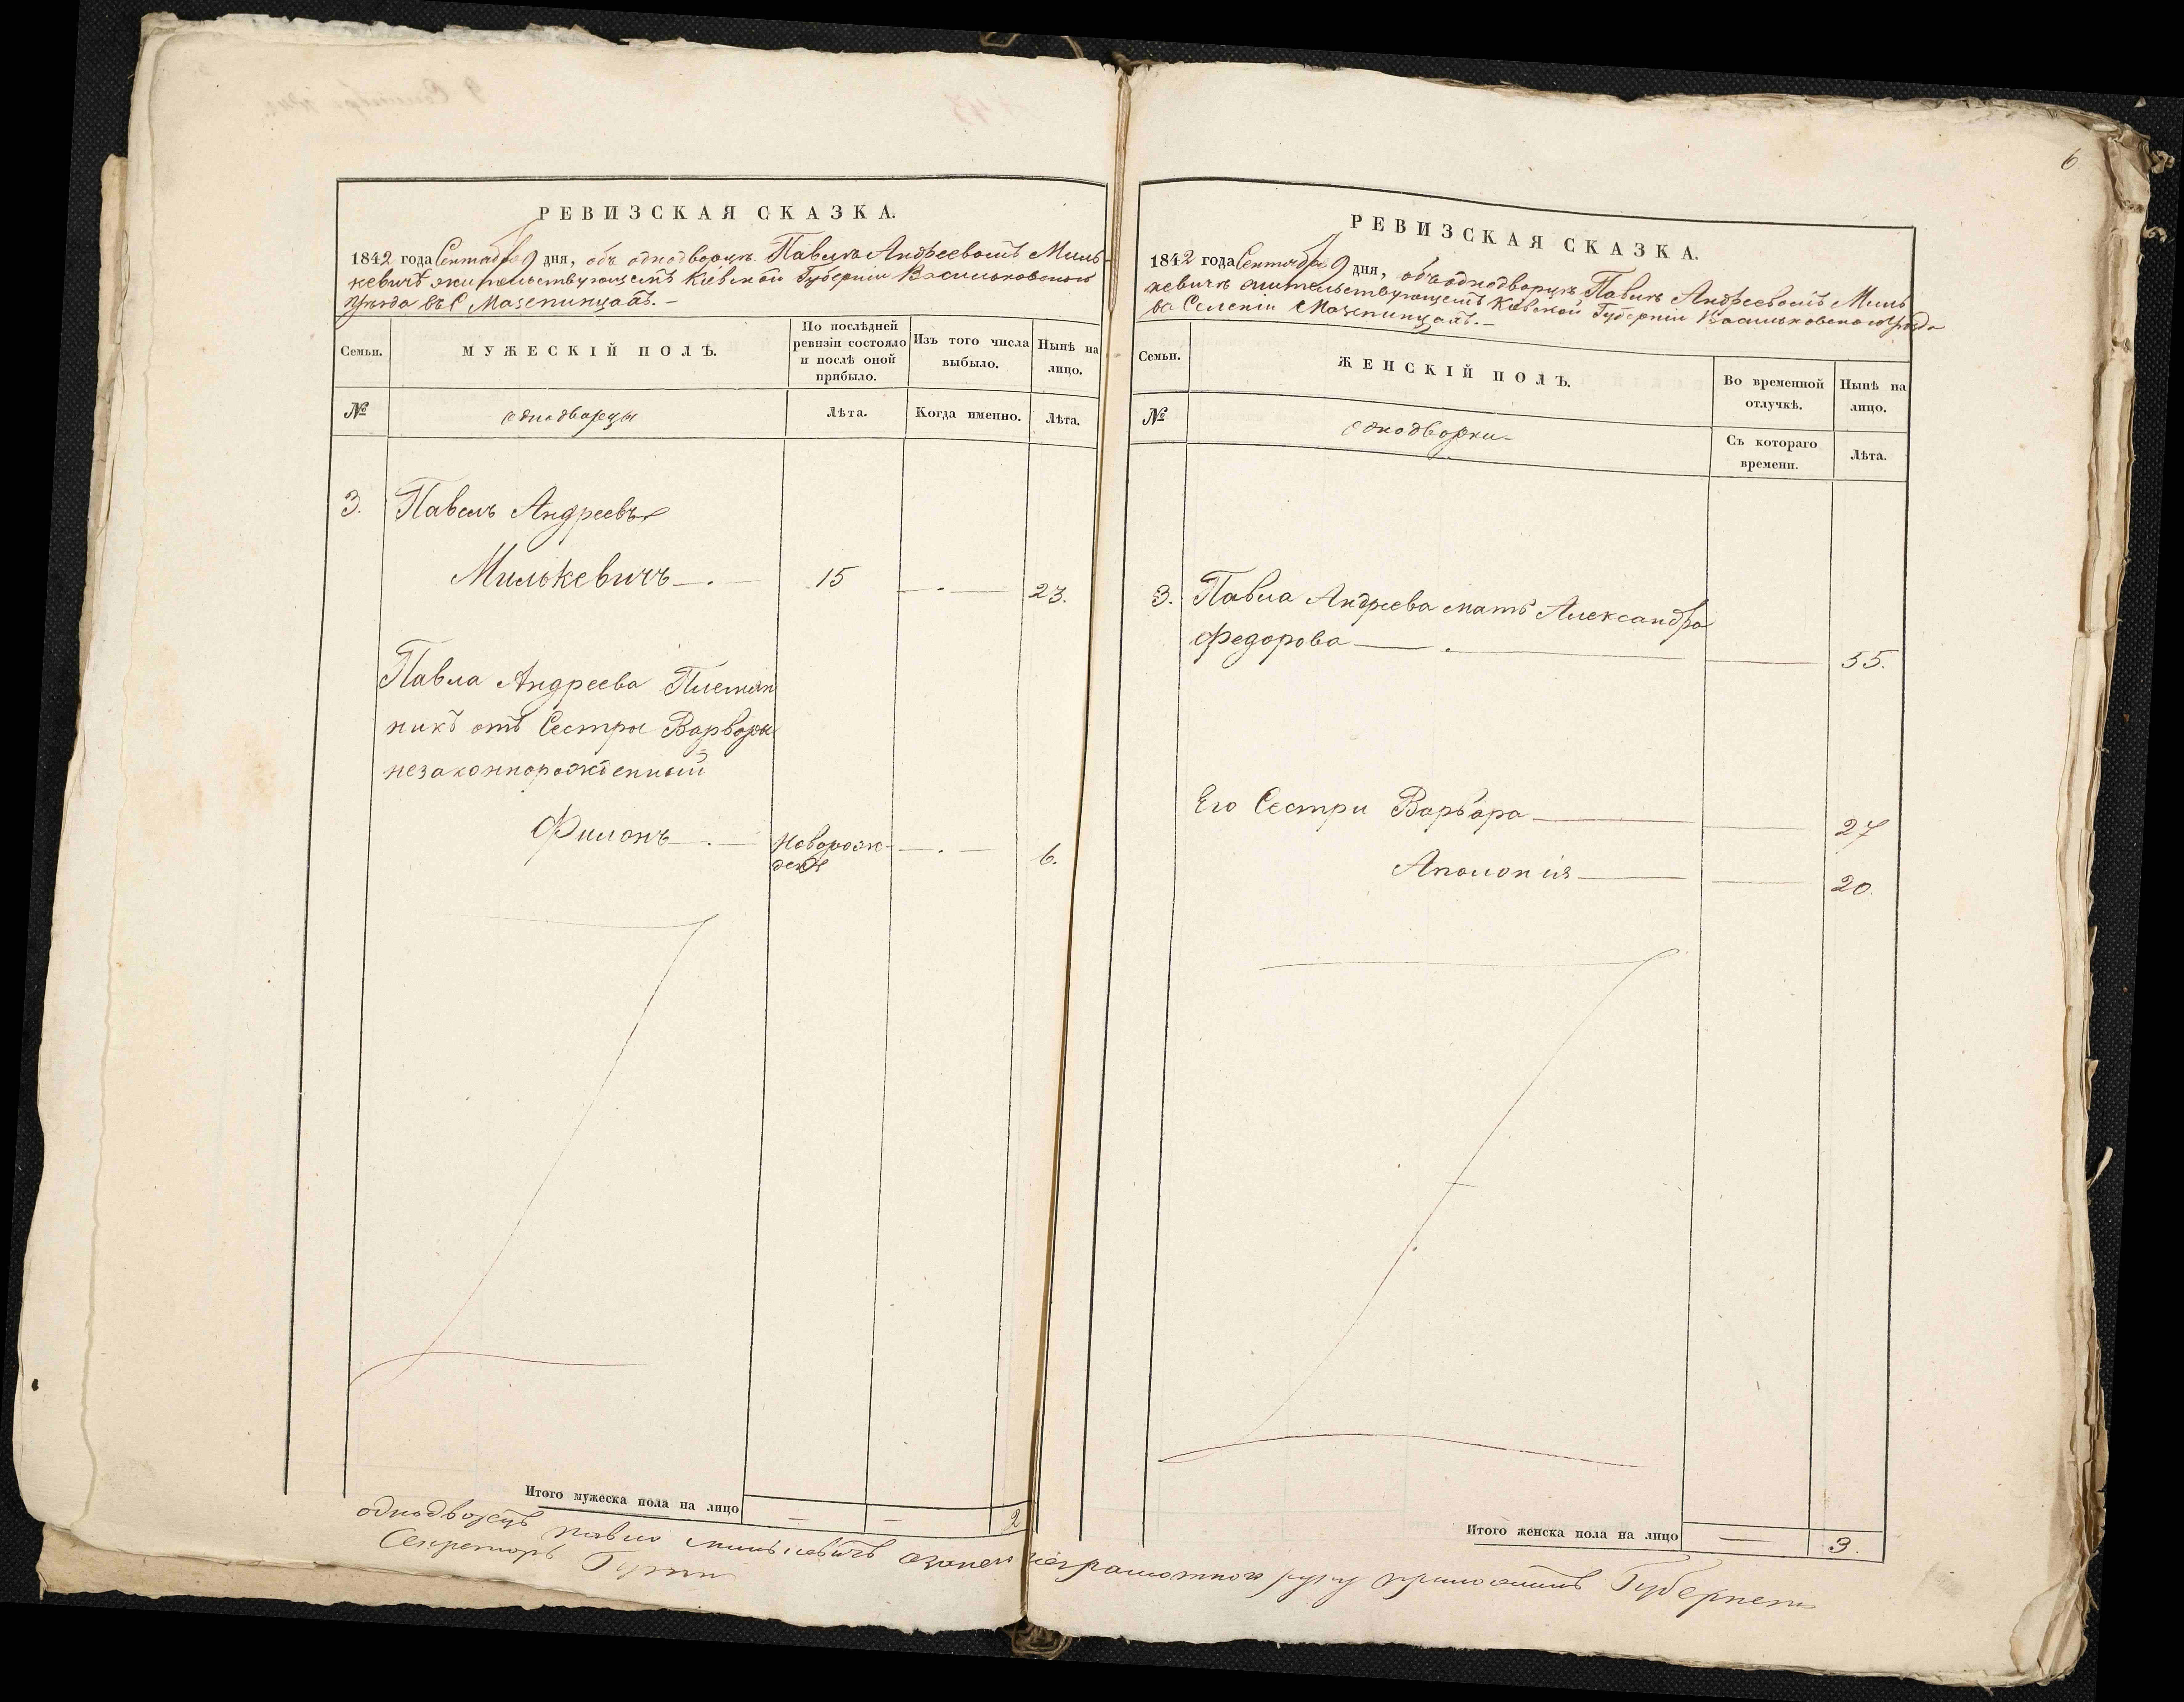 6
РЕВИЗСКАЯ СКАЗКА.
1842 года Сентября 9 дня, объ однодворцѣ Павлѣ Андреевомъ Миль-
кевичѣ жительствующемъ Кіевской Губерніи Васильковскаго
Уѣзда въ С Мазепинцахъ. –
Семьи.
МУЖЕСКІЙ ПОЛЪ.
По послѣдней
ревизіи состояло
и послѣ оной
прибыло.
Изъ того числа
выбыло.
Нынѣ на
лицо.
№
однодворцы
Лѣта.
Когда именно.
Лѣта.
3. Павелъ Андреевъ
Милькевичъ — . — 15 — . — 23.
Павла Андреева Племян
никъ отъ Сестры Варвары
незаконнорожденный
Филонъ — . — новорож-
денъ — . — 6.
Итого мужеска пола на лицо — — 2
РЕВИЗСКАЯ СКАЗКА.
1842 года Сентября 9 дня, объ однодворцѣ Павлѣ Андреевомъ Миль
кевичѣ жительствующемъ Кіевской Губерніи Васильковскаго Уѣзда
въ Селеніи Мазепинцахъ. –
Семьи.
ЖЕНСКІЙ ПОЛЪ.
Во временной
отлучкѣ.
Нынѣ на
лицо.
№
однодворки –
Съ котораго
времени.
Лѣта.
3. Павла Андреева мать Александра
Федорова — . — — 55.
Его Сестри Варвара — — 27
Аполонія — — 20.
Итого женска пола на лицо — 3.
однодворецъ Павло Милькевичъ азанего неграмотнаго руку приложилъ Губернски
Секретарь